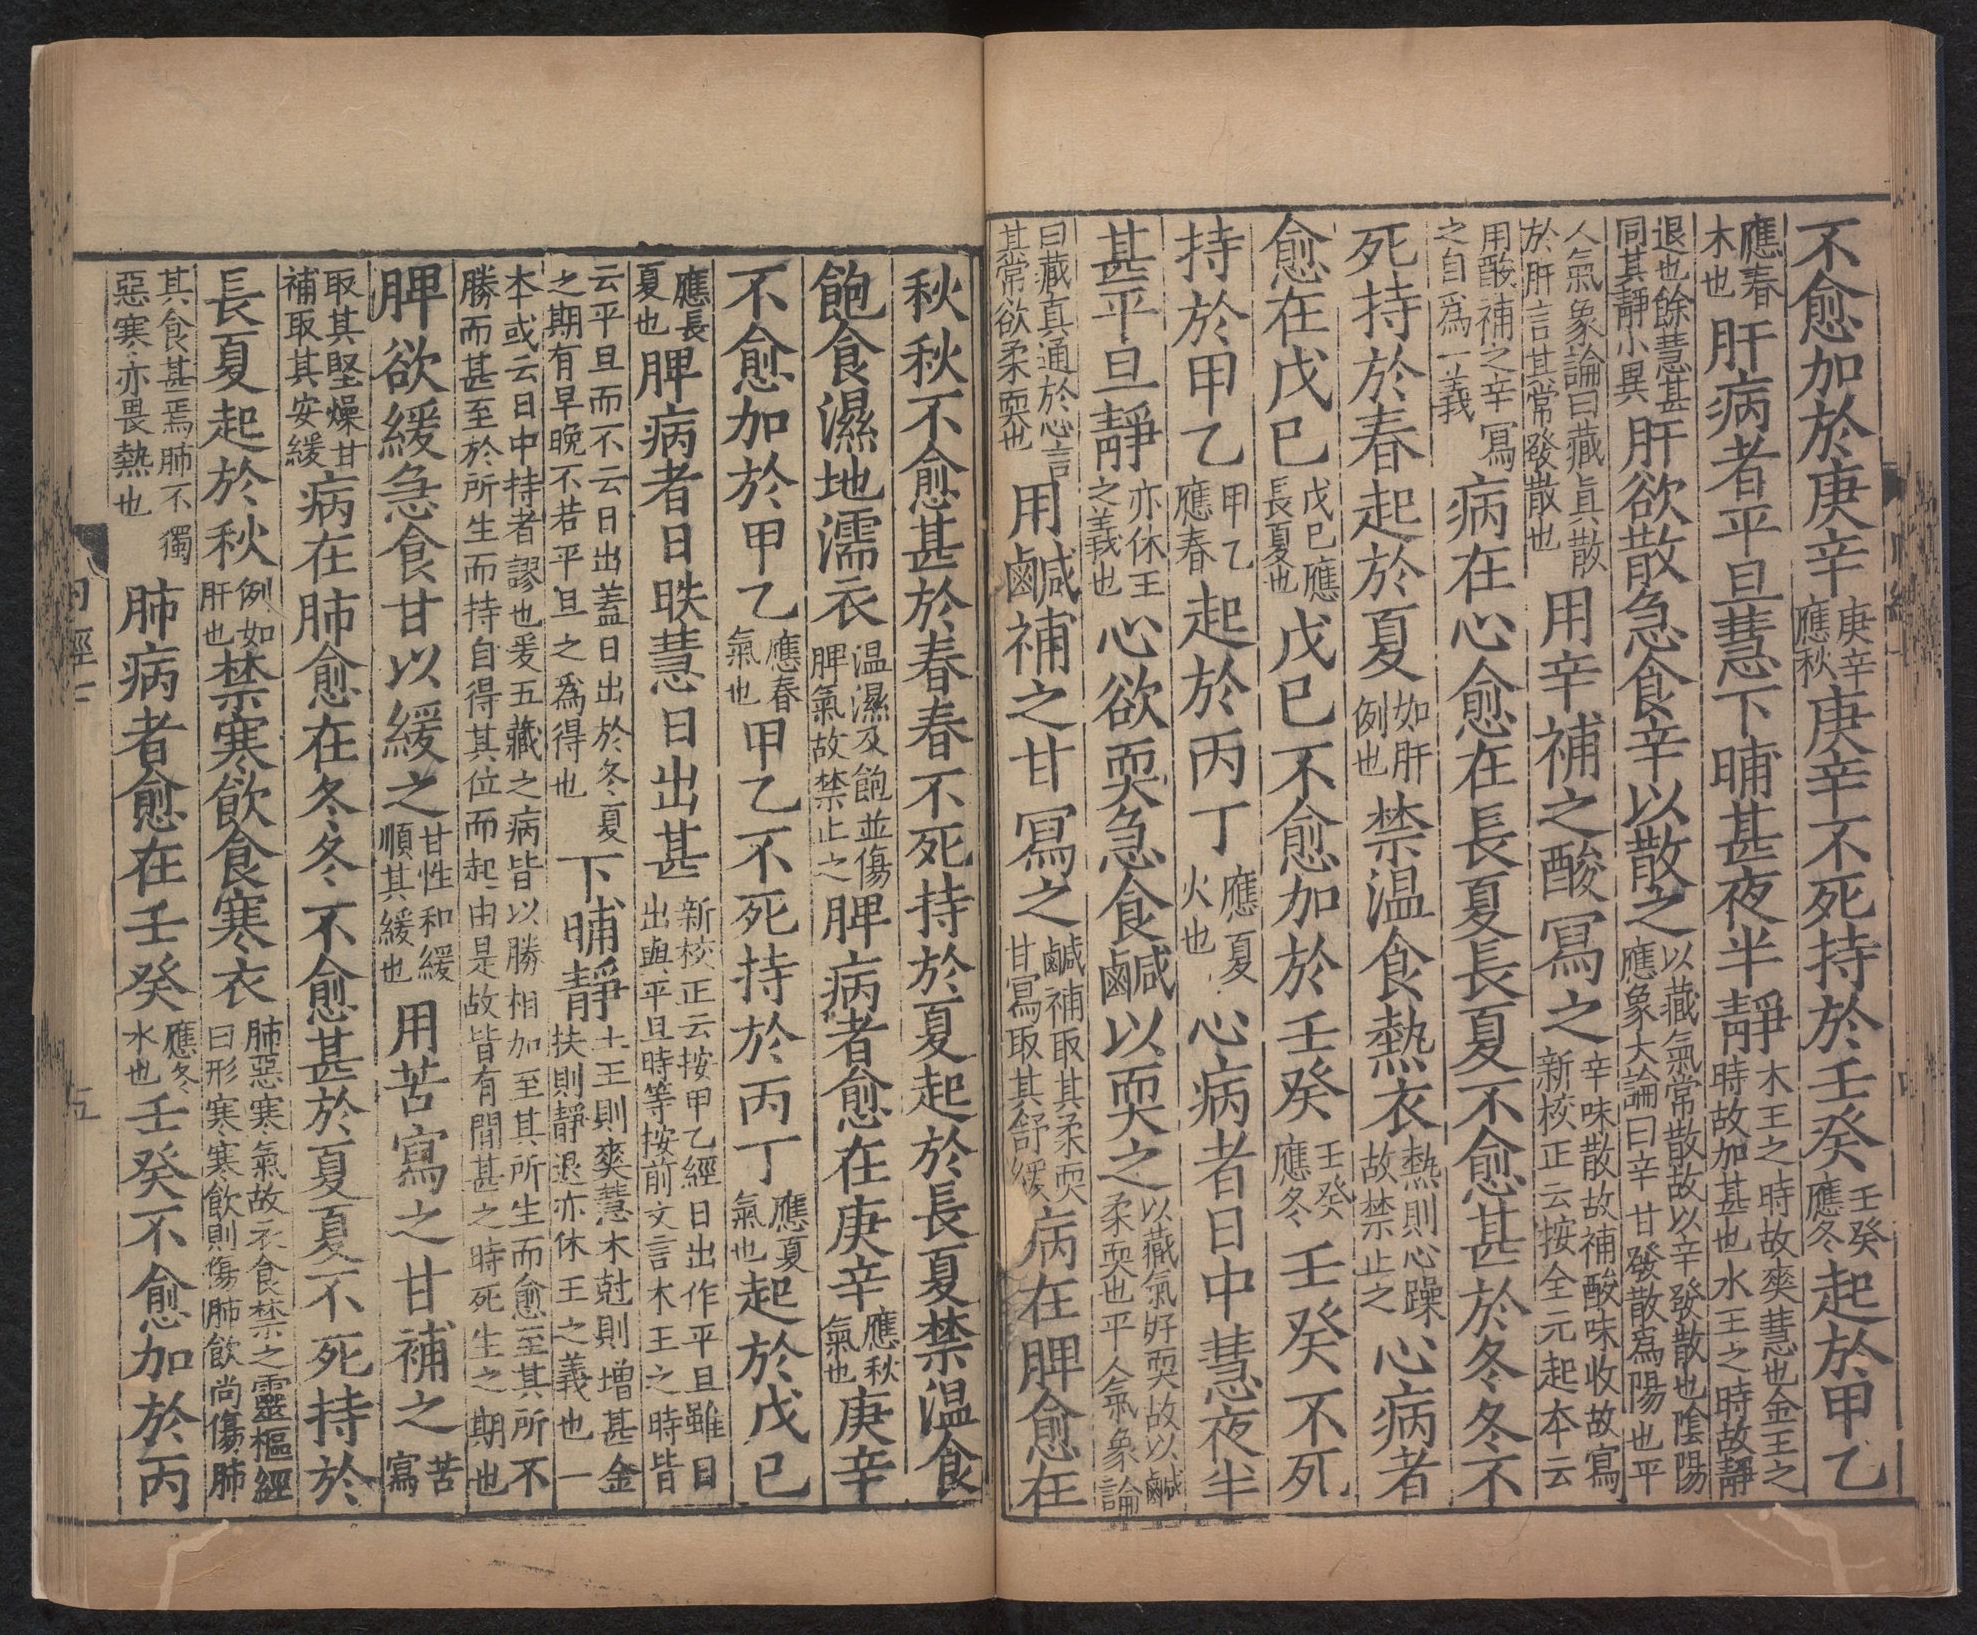 不愈加於庚辛庚辛應秋庚辛不死持於壬癸壬癸應冬起於甲乙
應春木也肝病者平旦慧下晡甚夜半靜木王之時故爽慧也金王之時故加甚也水王之時故靜
退也餘慧甚同其靜小異肝欲散急食辛以散之以藏氣常散故以辛發散也陰陽應象大論曰辛甘發散爲陽也平
人氣象論曰藏眞散於肝言其常發散也用辛補之酸冩之辛味散故補酸味收故寫新校正云按全元起本云
用酸補之辛冩之自爲一義病在心愈在長夏長夏不愈甚於冬冬不
死持於春起於夏如肝例也禁温食熱衣熱則心躁故禁止之心病者
愈在戊巳戊巳應長夏也戊巳不愈加於壬癸壬癸應冬壬癸不死
持於甲乙甲乙應春起於丙丁應夏火也心病者日中慧夜半
甚平旦靜亦休王之義也心欲耎急食鹹以耎之以藏氣好耎故以鹹柔耎也平人氣象論
曰藏真通於心言其常欲柔耎也用鹹補之甘冩之鹹補取其柔耎甘寫取其舒緩病在脾愈在
秋秋不愈甚於春春不死持於夏起於長夏禁温食
飽食濕地濡衣温濕及飽並傷脾氣故禁止之脾病者愈在庚辛應秋氣也庚辛
不愈加於甲乙應春氣也甲乙不死持於丙丁應夏氣也起於戊巳
應長夏也脾病者日昳慧日出甚新校正云按甲乙經日出作平旦雖日出與平旦時等按前文言木王之時皆
云平旦而不云日出蓋日出於冬夏之期有早晚不若平旦之爲得也下晡靜土王則爽慧木尅則增甚金扶則靜退亦休王之義也一
本或云日中持者謬也爰五藏之病皆以勝相加至其所生而愈至其所不勝而甚至於所生而持自得其位而起由是故皆有間甚之時死生之期也
脾欲緩急食甘以緩之甘性和緩順其緩也用苦寫之甘補之苦寫
取其堅燥甘補取其安緩病在肺愈在冬冬不愈甚於夏夏不死持於
長夏起於秋例如肝也禁寒飲食寒衣肺惡寒氣故衣食禁之靈樞經曰形寒寒飲則傷肺飲尚傷肺
其食甚焉肺不獨惡寒亦畏熱也肺病者愈在壬癸應冬水也壬癸不愈加於丙
內經七
五